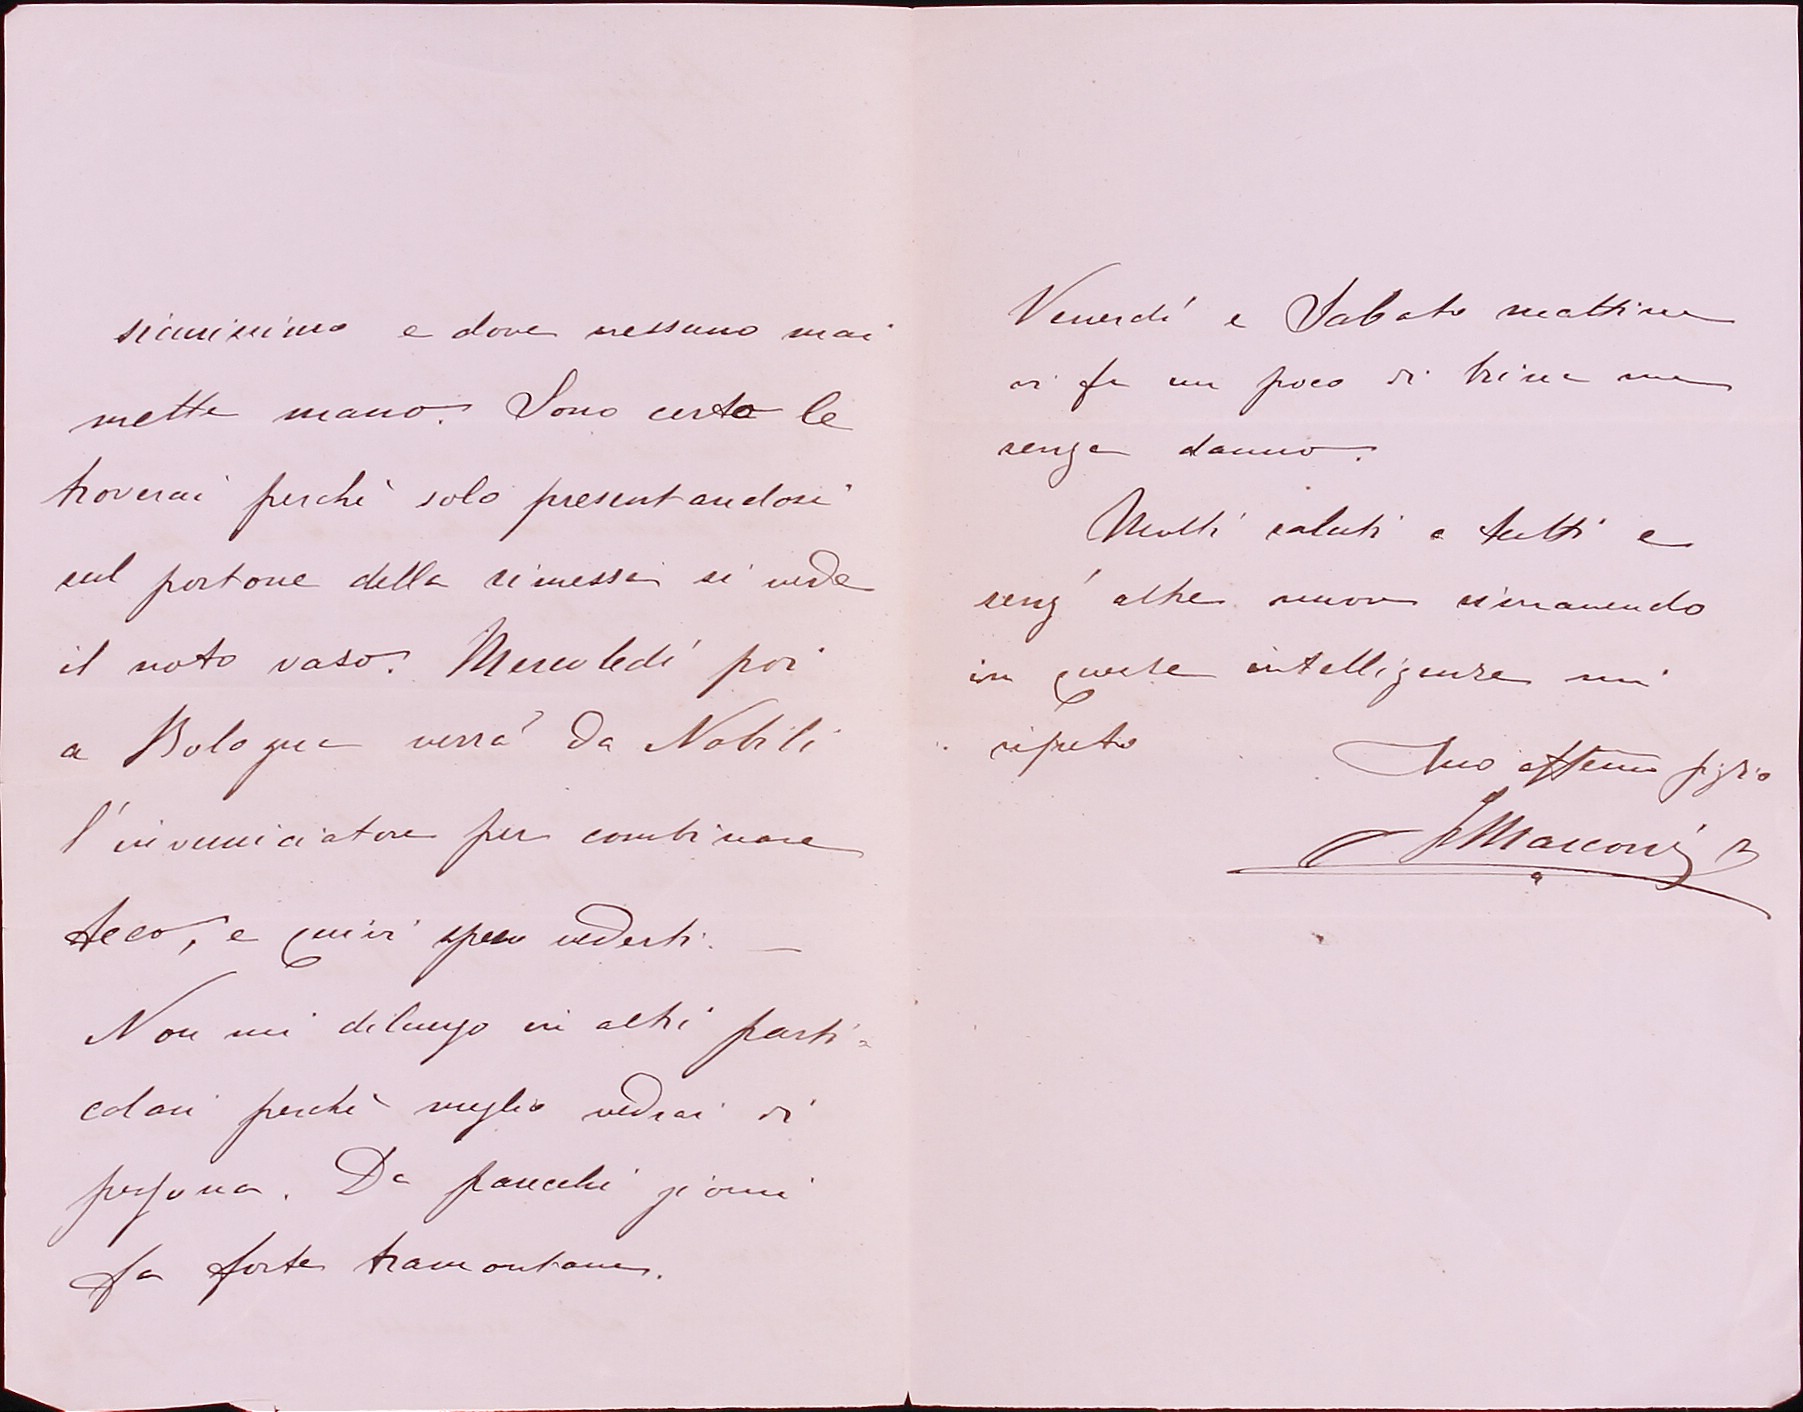 sicurissimo e dove nessuno mai
mette mano. Sono certo le
troverai perchè solo presentandosi
sul portone della rimessa si vede
il noto vaso. Mercoledí poi
a Bologna verrà da Nobili
l'inverniciatore per combinare
teco, e quivi spero vederti. —
Non mi dilungo in altri parti-
colari perchè meglio vedrai di
persona. Da parecchi giorni
fa forte tramontana.
Venerdí e Sabato mattina
vi fu un poco di brina ma
senza danno.
Molti saluti a tutti e
senz'altro rimanendo
in queste intelligenze mi
ripeto
Tuo affemo figlio
Marconi